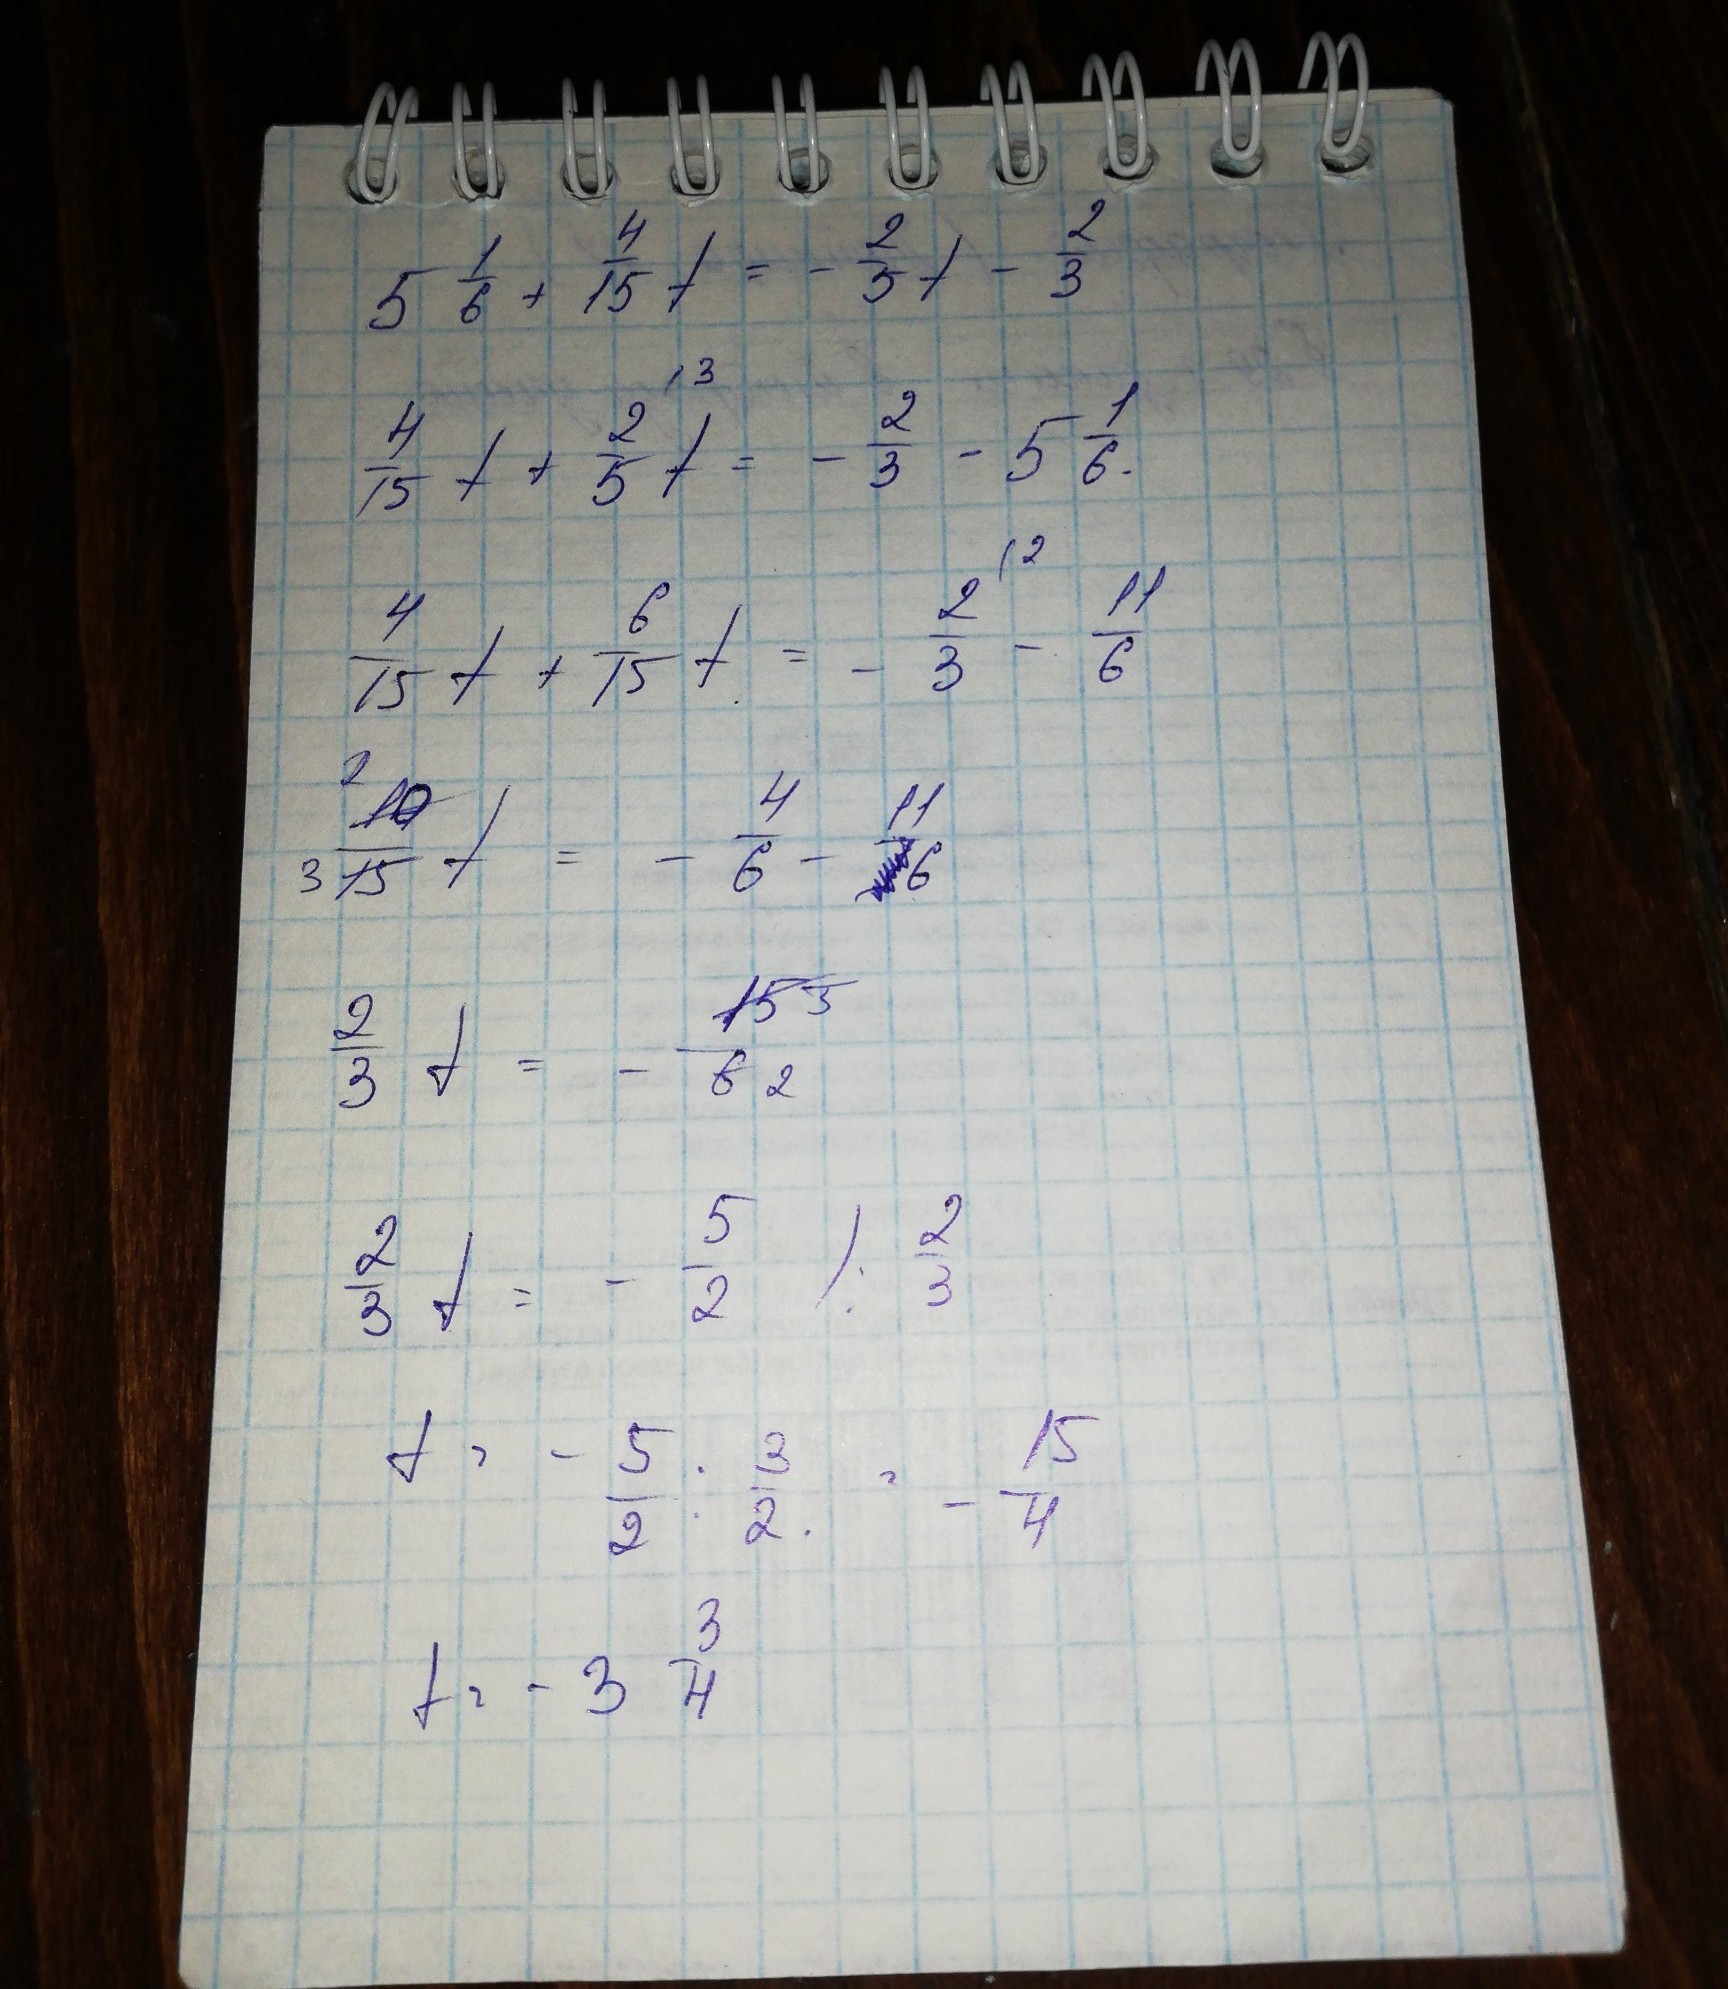 5 1/6 + 4/15 t = - 2/5 t - 2/3
4/15 t + 2/5 t |3 = - 2/3 - 5 1/6.
4/15 t + 6/15 t = - 2/3 |2 - 11/6
2 10/15 3 t = - 4/6 - 11/6
2/3 t = - 15 5/6 2
2/3 t = - 5/2 /: 2/3
t = - 5/2 : 3/2. = - 15/4
t = - 3 3/4